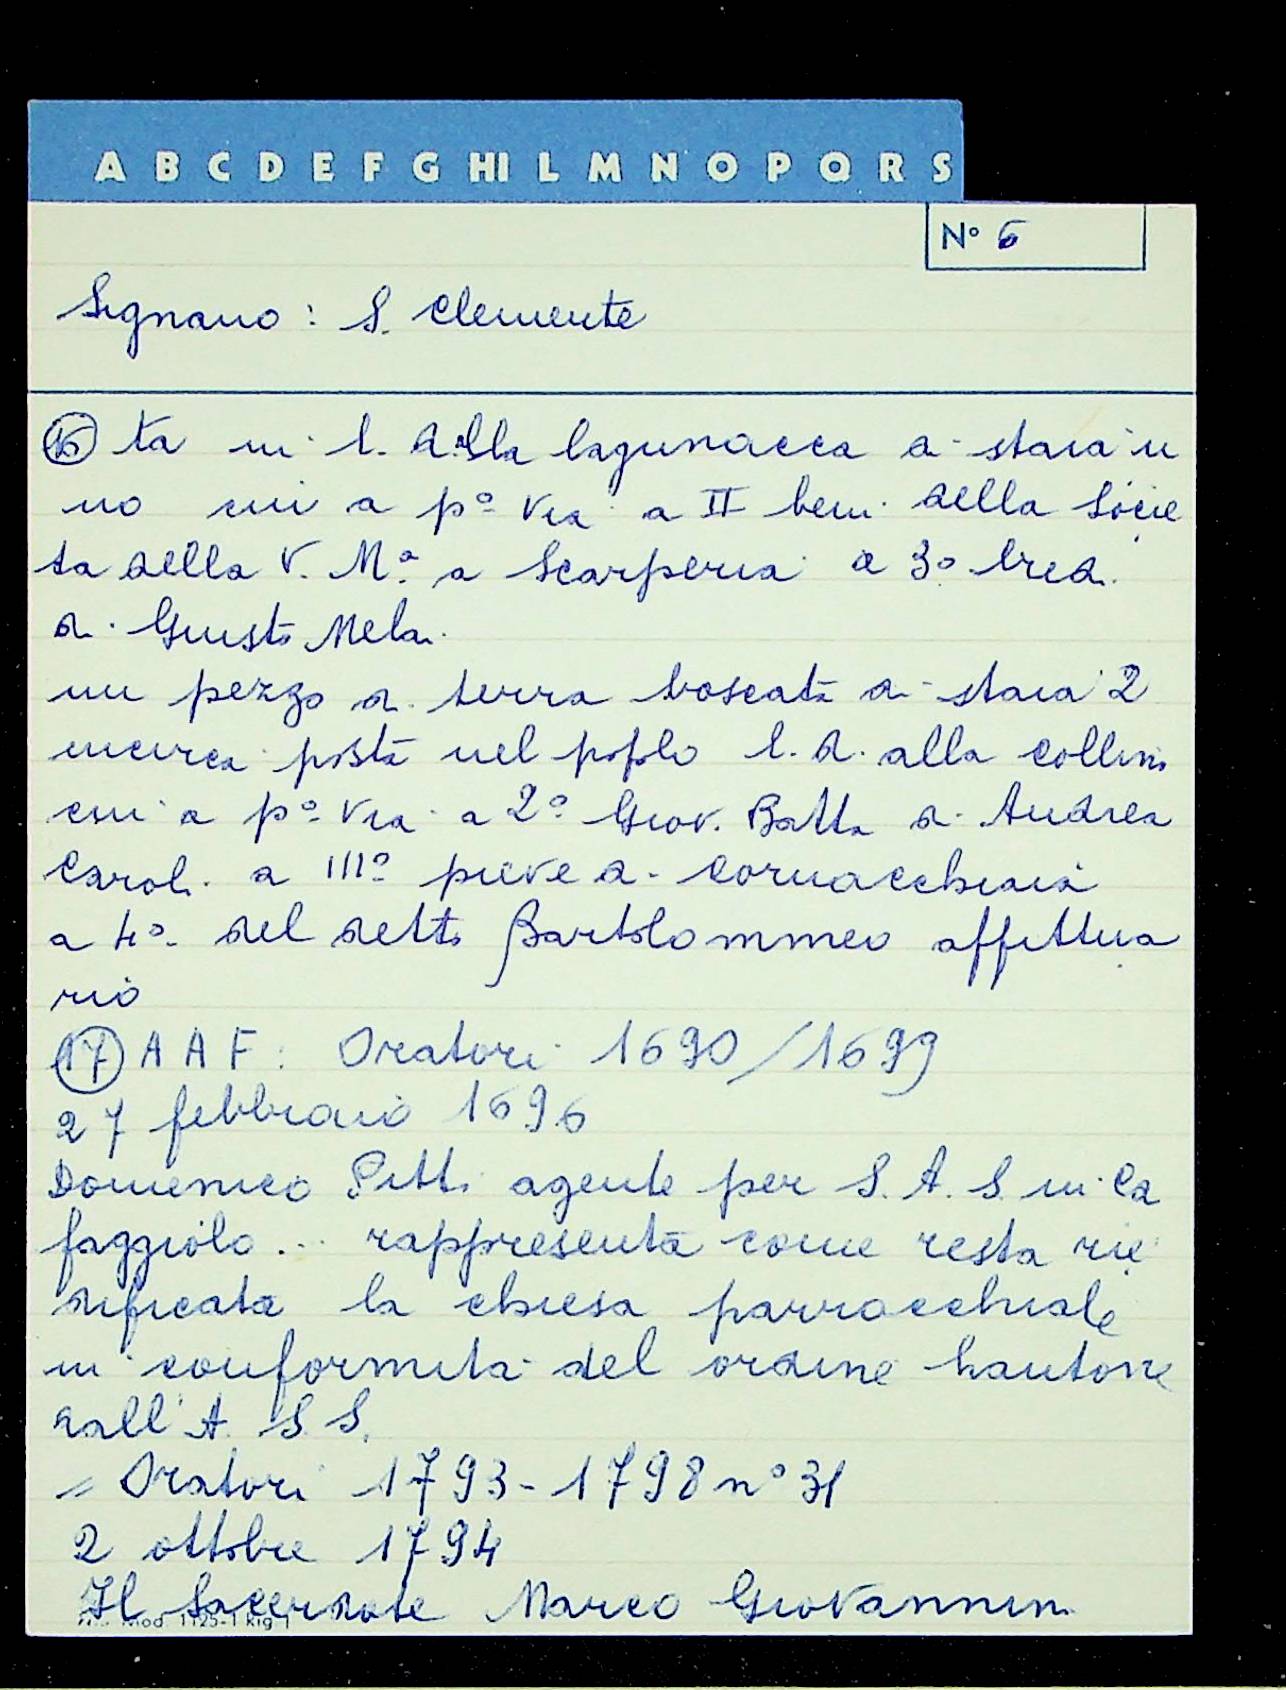 A B C D E F G HI L M N O P Q R S
N° 6
Signano: S. Clemente
16 ta in l. d. alla lagunacca di staia u
no cui a p° via a II beni della Socie
ta della V. M.a a Scarperia a 3° beni
di Giusto Melai
un pezzo di terra boscata di staia 2
incirca posta nel popolo l. d. alla collina
cui a p° via a 2° Giov. Batta di Andrea
Caroli a III° pieve di Cornacchiaia
a 4° del detto Bartolommeo affittua
rio
17 A A F: Oratori 1690/1699
27 febbraio 1696
Domenico Pitti agente per S. A. S. in Ca
faggiolo... rappresenta come resta rie
dificata la chiesa parrocchiale
in conformita del ordine hautone
dall'A. S. S.
= Oratori 1793-1798 n° 31
2 ottobre 1794
Il Sacerdote Marco Giovannini
Mod. 1125-1 kig-1